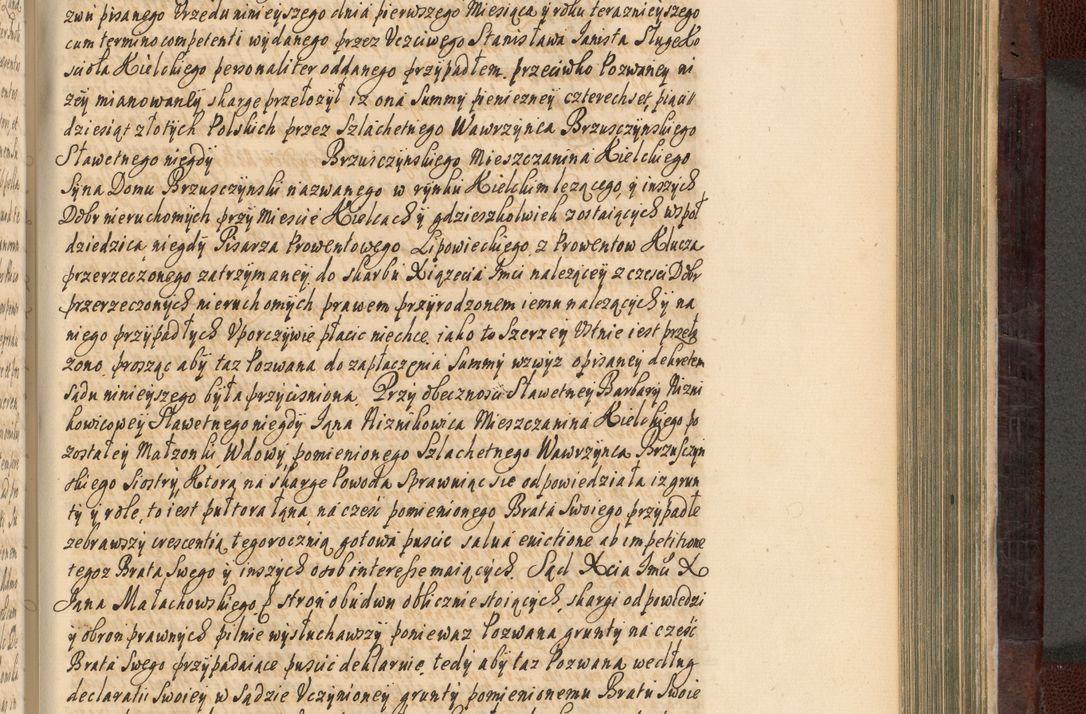 zwu pisanego Urzędu ninieyszego dnia pierwszego Miesiąca y roku teraznieyszego
cum termino competenti wydanego przez Uczciwego Stanisława Janista Sługę Ko
scioła Kielckiego personaliter oddanego przypadłem, przeciwko Pozwaney ni
zey mianowaney skargę przełozył iz ona Summy pienięzney czterechset piąci
dziesiąt złotych Polskich przez Szlachetnego Wawrzynca Brzusczynskiego
Sławetnego niegdy Brzusczynskiego Mieszczanina Kielckiego
Syna Domu Brzusczynski nazwanego w rynku Kielckim lezącego y inszych
Dobr nieruchomych przy Miescie Kielcach y gdzieszkolwiek zostaiących wspoł
dziedzica, niegdy Pisarza Prowentowego Lipowieckiego z Prowentow Klucza
przerzeczonego zatrzymaney do skarbu Xiązecia Jmci nalezącey z częsci Dobr
przerzeczonych nieruchomych prawem przyrodzonem iemu nalezących y na
niego przypadłych Uporczywie płacic niechce, iako to Szerzey Ustnie iest przeło
zono, prosząc aby taz Pozwana do zapłacenia Summy wzwyz opisaney dekretem
sądu ninieyszego była przycisniona. Przy obecnosci Sławetney Barbary Nizni
kowicowey Sławetnego niegdy Jana Niznikowica Mieszczanina Kielckiego po
zostałey Małzonki, Wdowy pomienionego Szlachetnego Wawrzynca Brzusczyn
skiego Siostry, Ktora na skargę Powoda Sprawuiąc się odpowiedziała iz grun
ty y role, to iest pułtora łana, na częsc pomienionego Brata Swoiego przypadłe
zebrawszy crescentią tegoroczną gotowa puscic salva evictione ab impetitione
tegoz Brata Swego y inszych osob interesse maiących. Sąd Xcia Jmci X
Jana Małachowskiego B stron obudwu oblicznie stoiących, skargi odpowiedzi
y obron prawnych pilnie wysłuchawszy, poniewaz Pozwana grunty na częsc
Brata Swego przypadaiące puscic deklaruie, tedy aby taz Pozwana według
declaratii Swoiey w Sądzie Uczynioney grunty pomienionemu Bratu Swoie